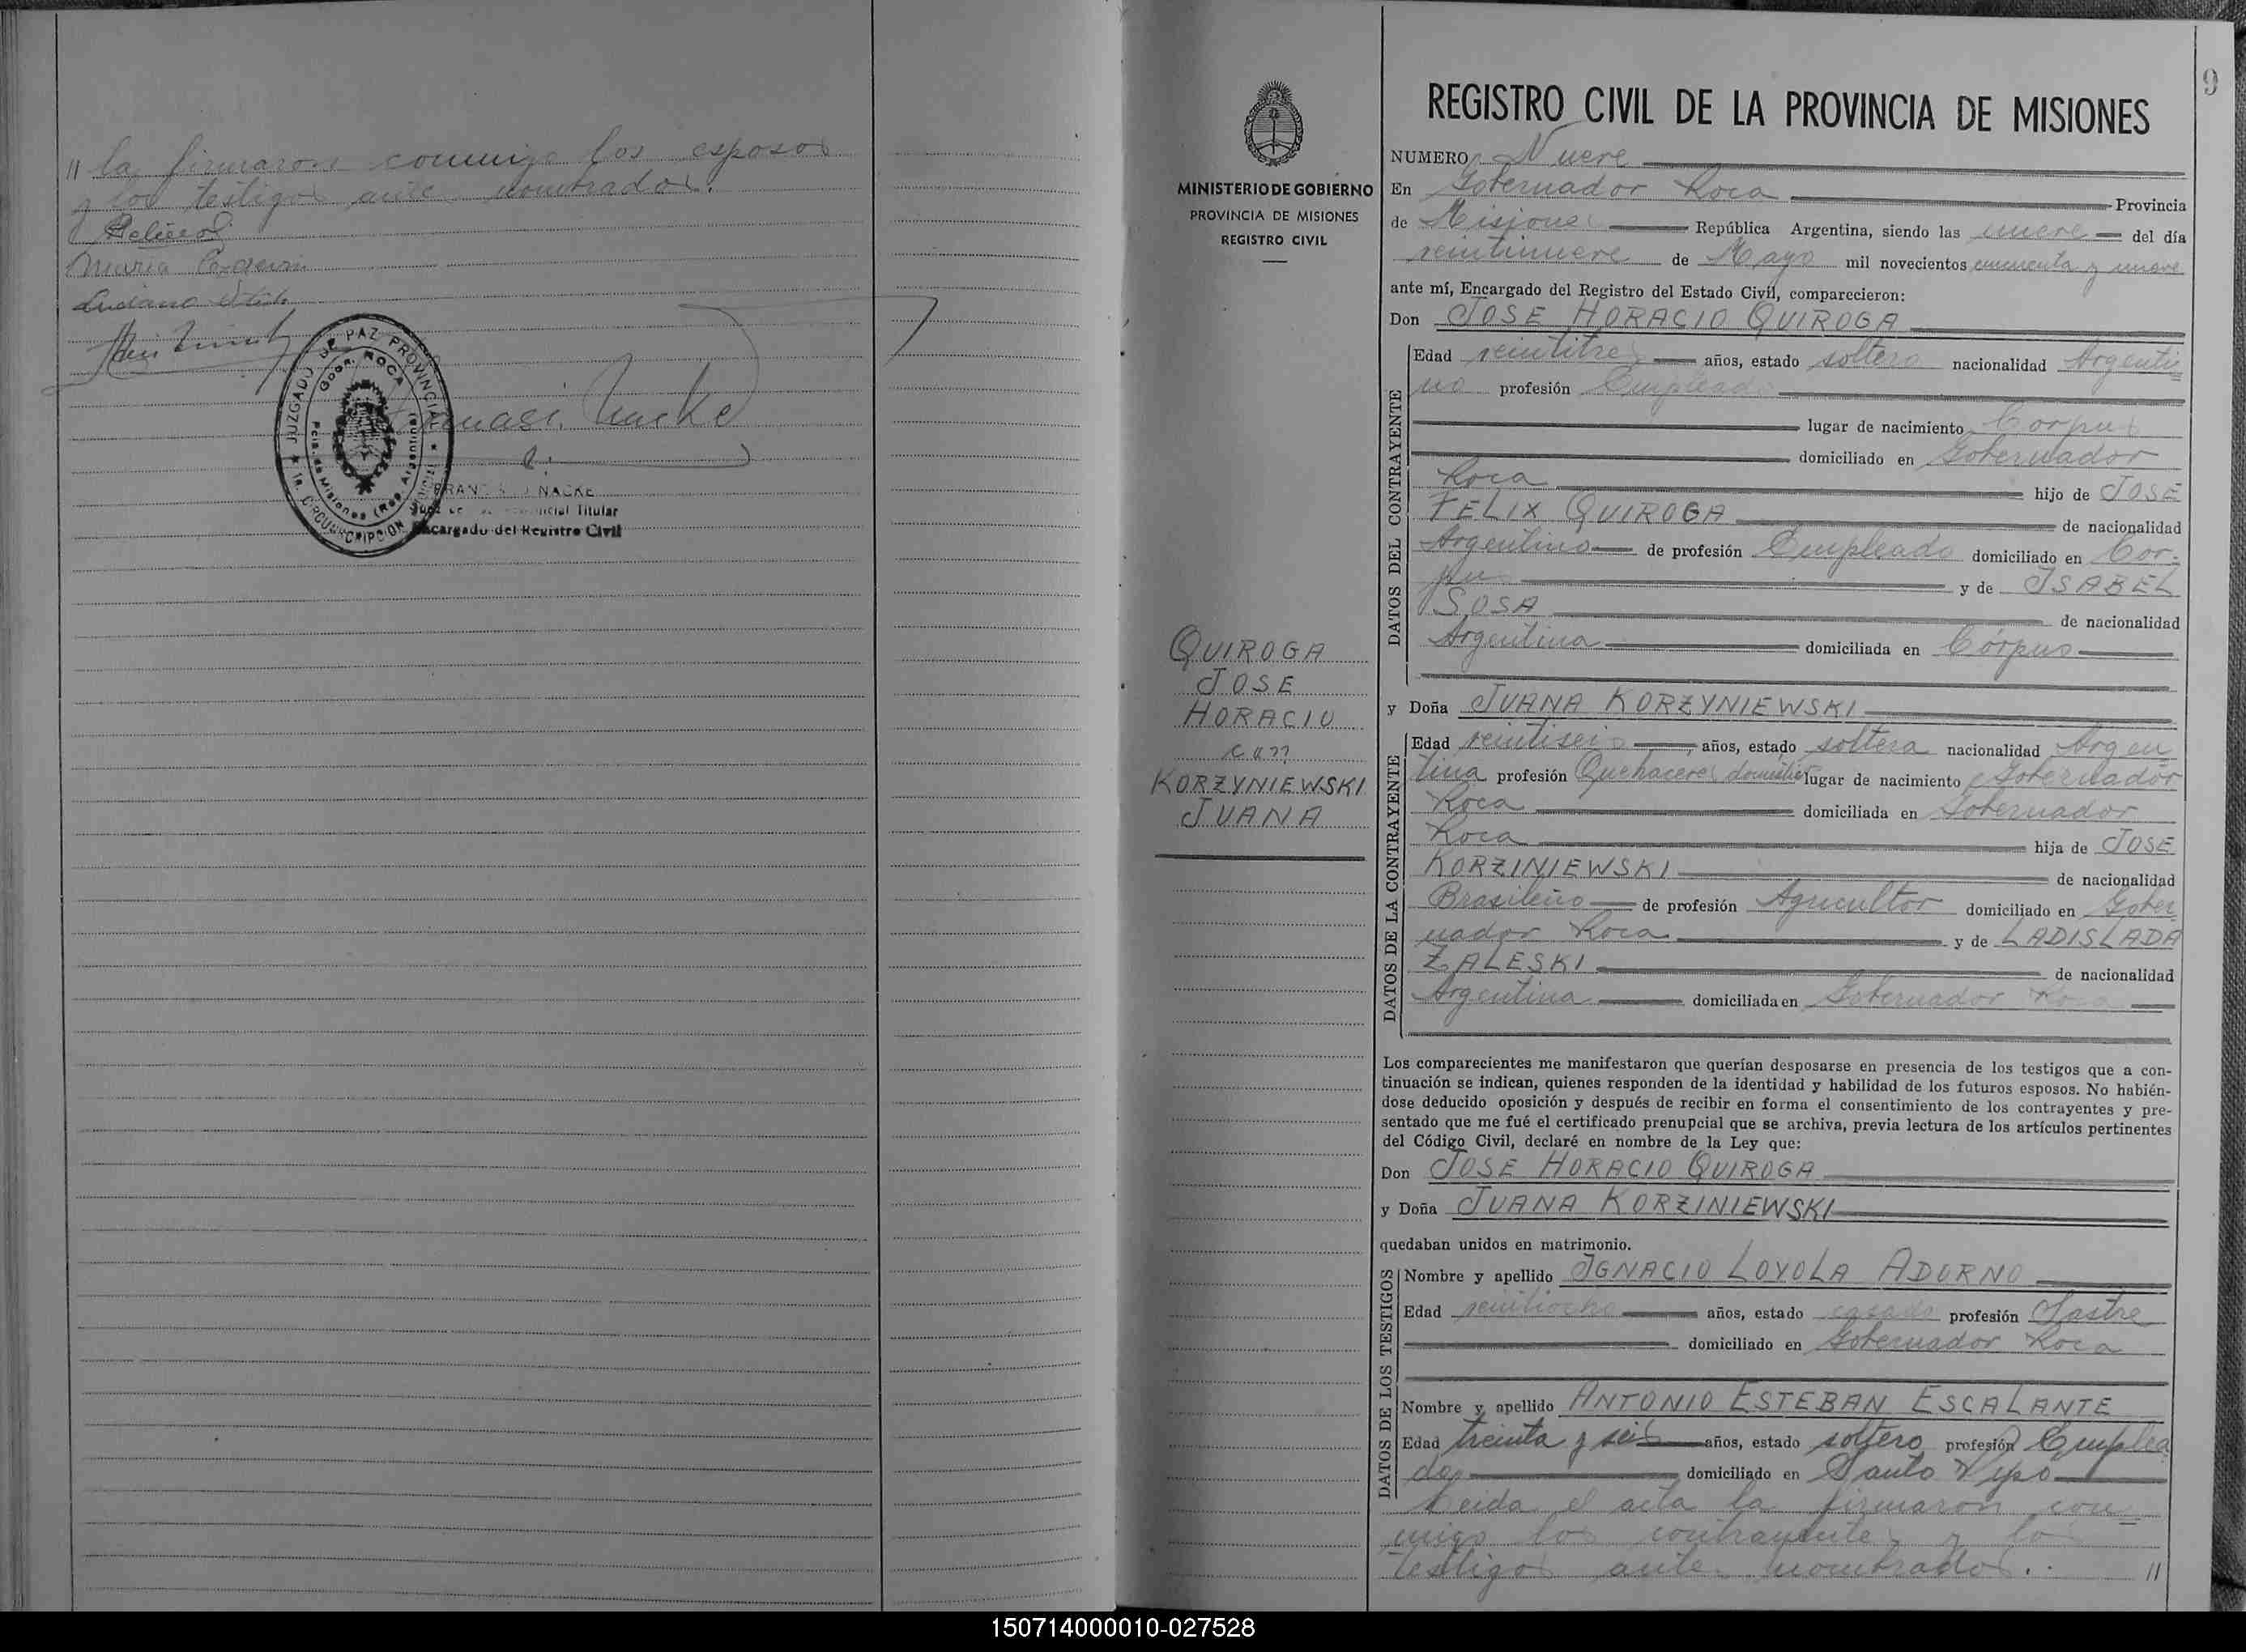 // la firmaron conmigo los esposos
y los testigos ante nombrados.
Maria
Luciano
JUZGADO DE PAZ PROVINCIAL
Gdor. ROCA
Pcia. de Misiones (Rep. Argentina)
1a. CIRCUNSCRIPCION
NACKE
Titular
Encargado del Registro Civil
9
REGISTRO CIVIL DE LA PROVINCIA DE MISIONES
MINISTERIO DE GOBIERNO
PROVINCIA DE MISIONES
REGISTRO CIVIL
QUIROGA
JOSE
HORACIO
con
KORZYNIEWSKI
JUANA
NUMERO Nueve
En Gobernador Roca Provincia
de Misiones República Argentina, siendo las nueve del día
veintinueve de Mayo mil novecientos cincuenta y nueve
ante mí, Encargado del Registro del Estado Civil, comparecieron:
Don JOSE HORACIO QUIROGA
DATOS DEL CONTRAYENTE
Edad veintitres años, estado soltero nacionalidad Argenti=
no profesión Empleado
lugar de nacimiento Corpus
domiciliado en Gobernador
Roca hijo de JOSE
FELIX QUIROGA de nacionalidad
Argentino de profesión Empleado domiciliado en Cor=
pus y de ISABEL
SOSA de nacionalidad
Argentina domiciliada en Córpus
y Doña JUANA KORZYNIEWSKI
DATOS DE LA CONTRAYENTE
Edad veintiseis años, estado soltera nacionalidad Argen
tina profesión Quehaceres domésticos lugar de nacimiento Gobernador
Roca domiciliada en Gobernador
Roca hija de JOSE
KORZINIEWSKI de nacionalidad
Brasileño de profesión Agricultor domiciliado en Gober
nador Roca y de LADISLADA
ZALESKI de nacionalidad
Argentina domiciliada en Gobernador Roca
Los comparecientes me manifestaron que querían desposarse en presencia de los testigos que a con-
tinuación se indican, quienes responden de la identidad y habilidad de los futuros esposos. No habién-
dose deducido oposición y después de recibir en forma el consentimiento de los contrayentes y pre-
sentado que me fué el certificado prenupcial que se archiva, previa lectura de los artículos pertinentes
del Código Civil, declaré en nombre de la Ley que:
Don JOSE HORACIO QUIROGA
y Doña JUANA KORZINIEWSKI
quedaban unidos en matrimonio.
DATOS DE LOS TESTIGOS
Nombre y apellido IGNACIO LOYOLA ADORNO
Edad veintiocho años, estado casado profesión Sastre
domiciliado en Gobernador Roca
Nombre y apellido ANTONIO ESTEBAN ESCALANTE
Edad treinta y seis años, estado soltero profesión Emplea
do domiciliado en Santo Pipo
Leida el acta la firmaron con=
migo los contrayentes y los
testigos ante nombrados. //
150714000010-027528